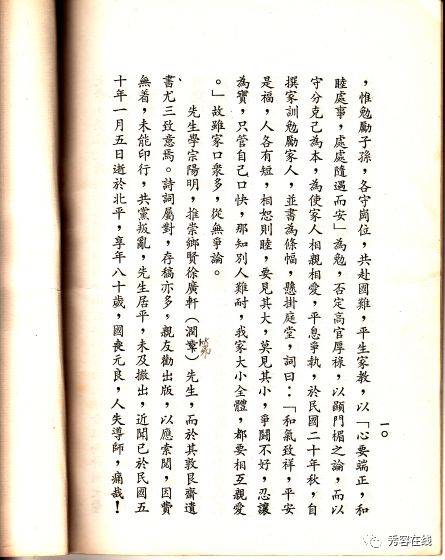 一〇
，惟勉勵子孫，各守崗位，共赴國難，平生家教，以「心要端正，和
睦處事，處處隨遇而安」為勉，否定高官厚祿，以顯門楣之論，而以
守分克己為本，為使家人相親相愛，平息爭執，於民國二十年秋，自
撰家訓勉勵家人，並書為條幅，懸掛庭堂，詞曰：「和氣致祥，平安
是福，人各有短，相恕則睦，要見其大，莫見其小，爭鬪不好，忍讓
為寶，只管自己口快，那知別人難耐，我家大小全體，都要相互親愛
。」故雖家口衆多，從無爭論。
先生學宗陽明，推崇鄉賢徐廣軒（潤）先生，而於其敦艮齋遺
書尤三致意焉。詩詞屬對，存稿亦多，親友勸出版，以應索閱，因費
無着，未能印行，共黨叛亂，先生居平，未及撤出，近聞已於民國五
十年一月五日逝於北平，享年八十歲，國喪元良，人失導師，痛哉！
秀容在线